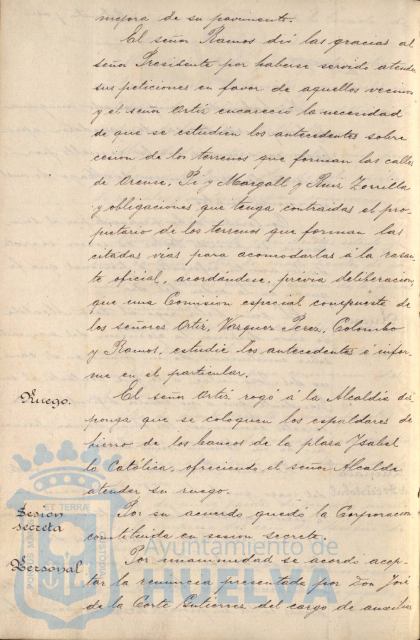 mejora de su pavimento.
El señor Ramos dió las gracias al
señor Presidente por haberse servido atender
sus peticiones en favor de aquellos vecinos
y el señor Ortiz encareció la necesidad
de que se estudien los antecedentes sobre
cesión de los terrenos que forman las calles
de Orense, Pi y Margall y Ruiz Zorrilla
y obligaciones que tenga contraidas el pro-
pietario de los terrenos que forman las
citadas vias para acomodarlas á la rasan-
te oficial, acordándose, previa deliberacion,
que una Comisión especial compuesta de
los señores Ortiz, Vazquez Perez, Colombo
y Ramos, estudie los antecedentes é infor-
me en el particular.
Ruego.
El señor Ortiz rogó á la Alcaldía dis-
ponga que se coloquen los espaldares de
hierro de los bancos de la plaza Isabel
la Católica, ofreciendo el señor Alcalde
atender su ruego.
Sesión
secreta
Por su acuerdo quedó la Corporación
constituida en sesión secreta.
Personal
Por unanimidad se acordó acep-
tar la renuncia presentada por Don José
de la Corte Gutierrez del cargo de auxiliar
Ayuntamiento de
HUELVA